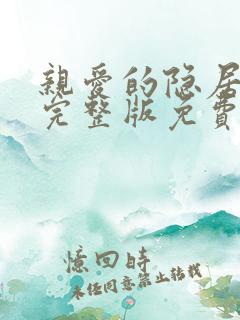 親愛的隐居
完整版免費
憶回時
未任同意禁止转载